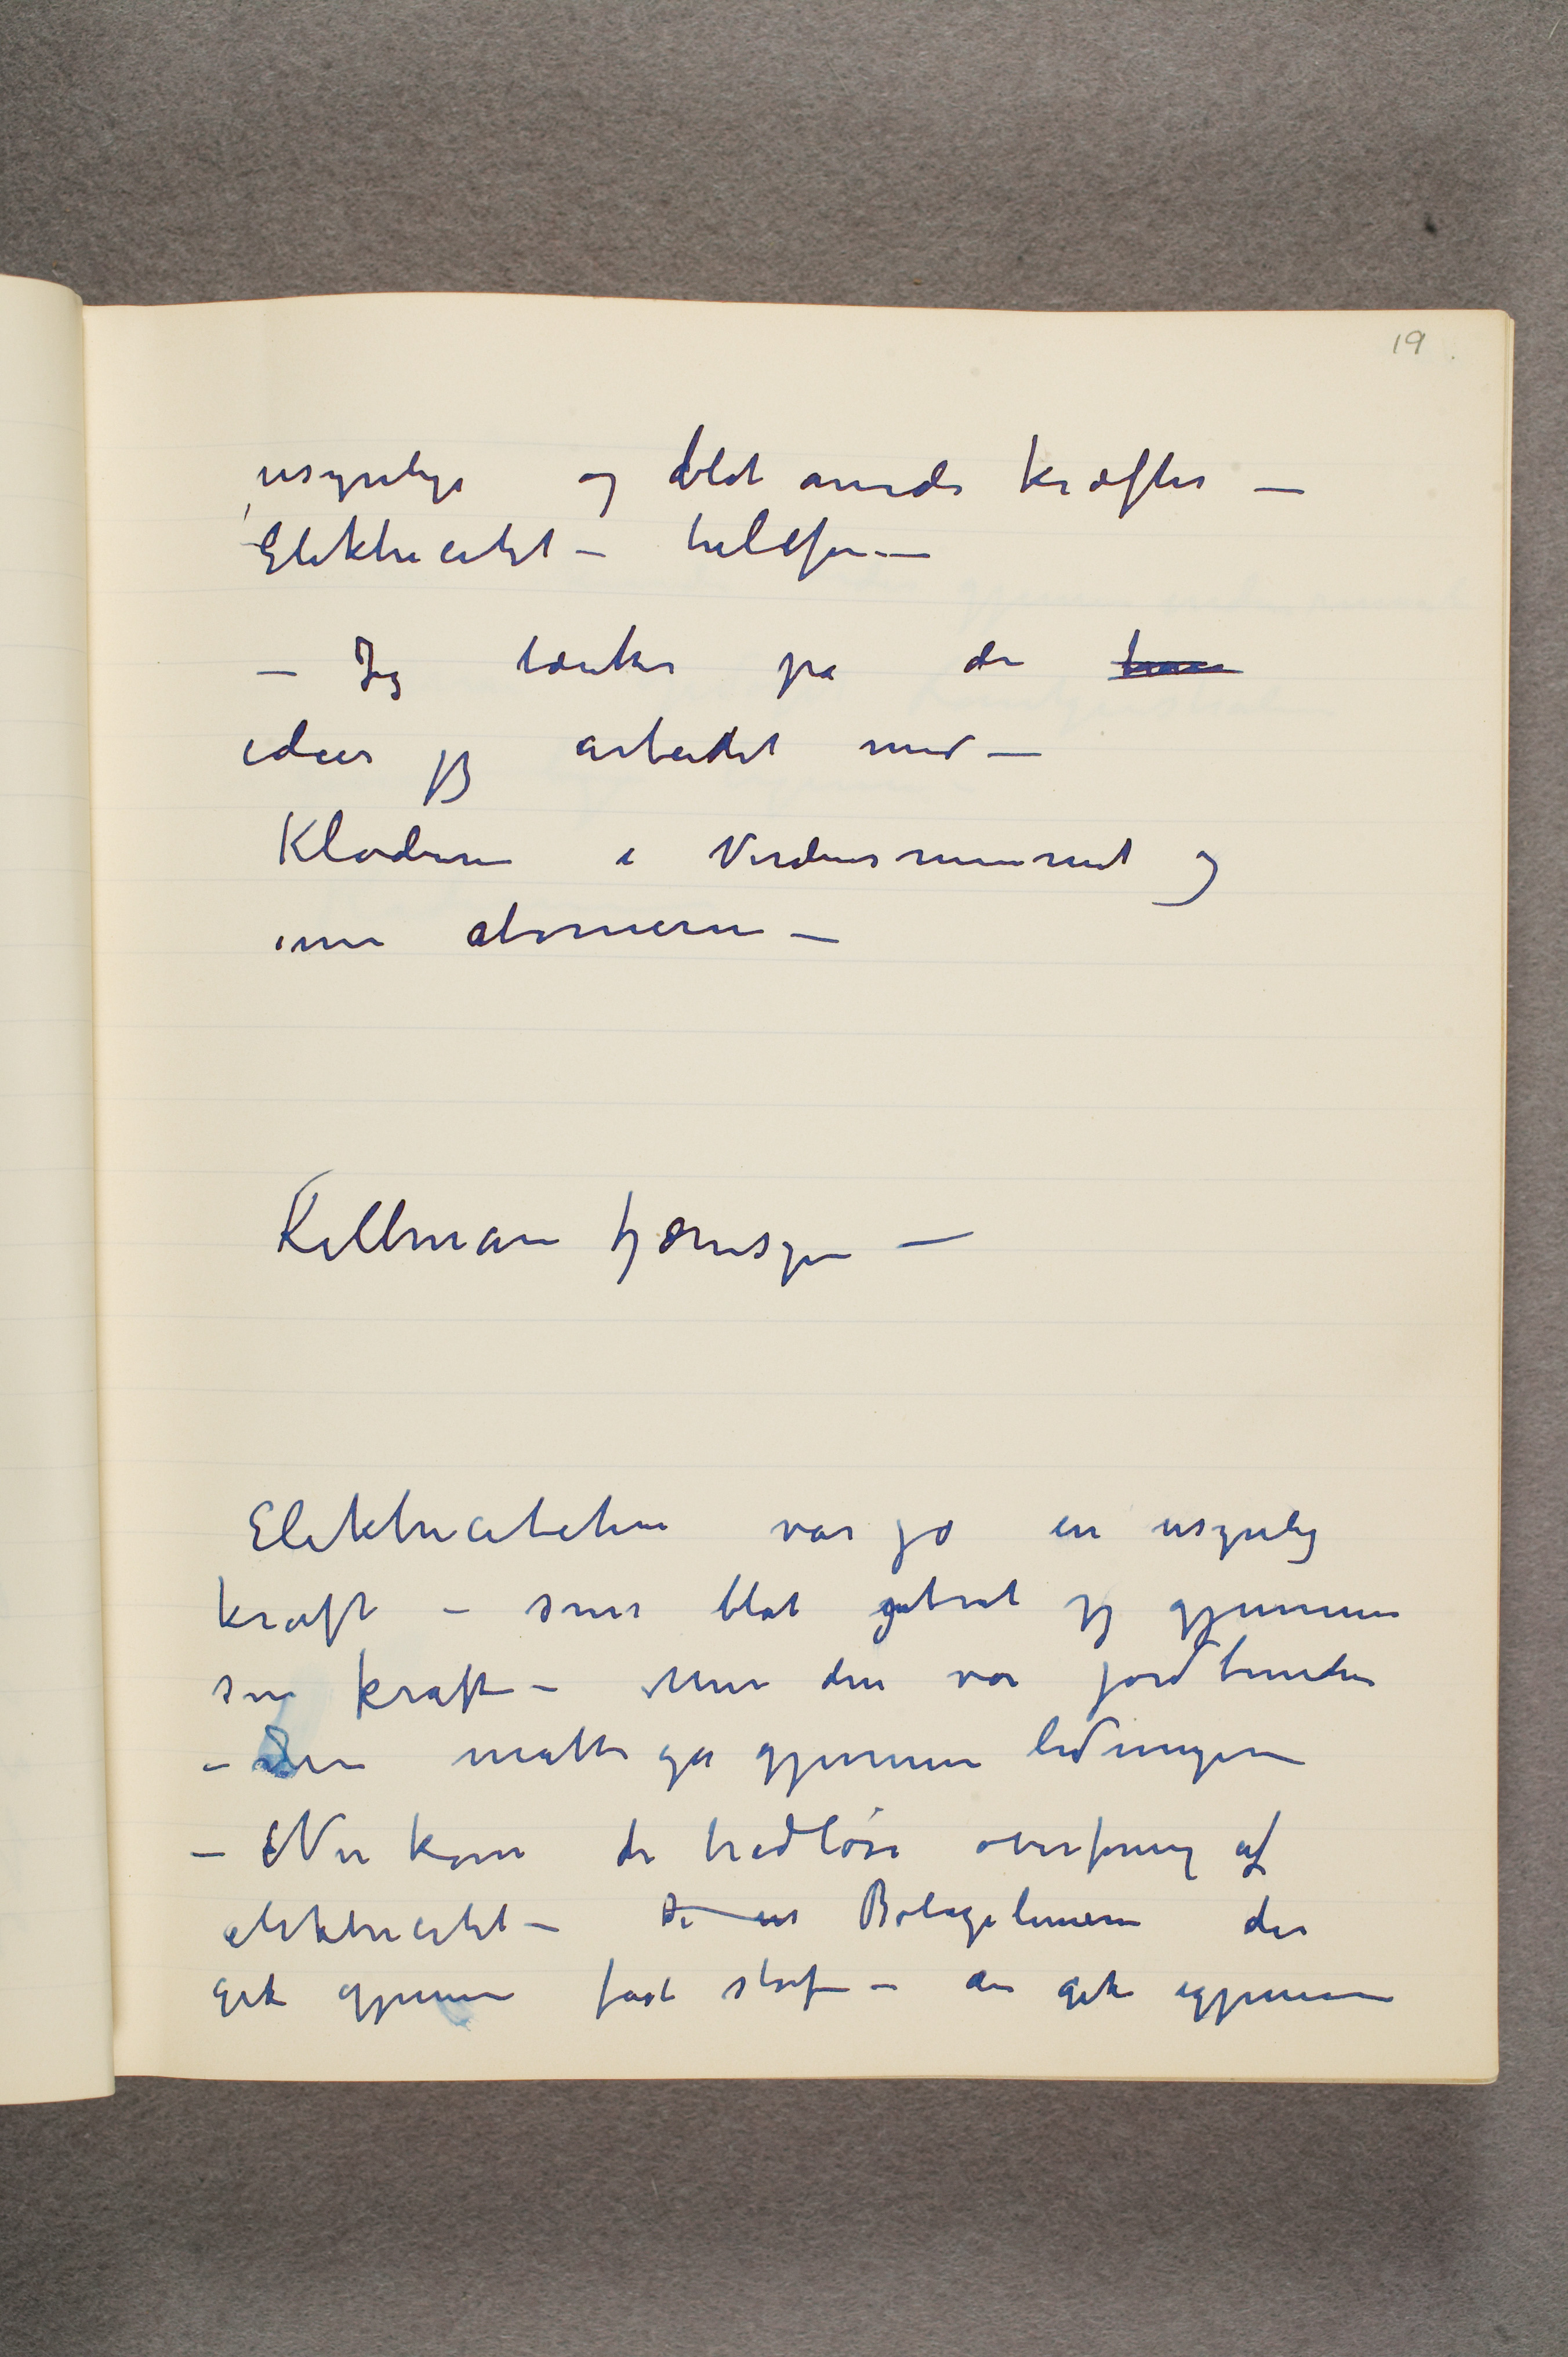 19.
usynlige og blot anede kræfter –
Elektricitet – telefon –
– Jeg tænker på de
ideer jeg arbeidet med –
Kloderne i Verdensrummet og
inne atomerne –
Kellman fjernsyn –
Elektriciteten var jo en usynlig
kraft – som blot gjennem
sin kraft – Men den var jordbunden
– Den måtte gå gjennem ledningen
– Nu kom de trådløse overføring af
elektricitet – Bølgelinierne der
gik gjennem fast stof – der gik igjennem